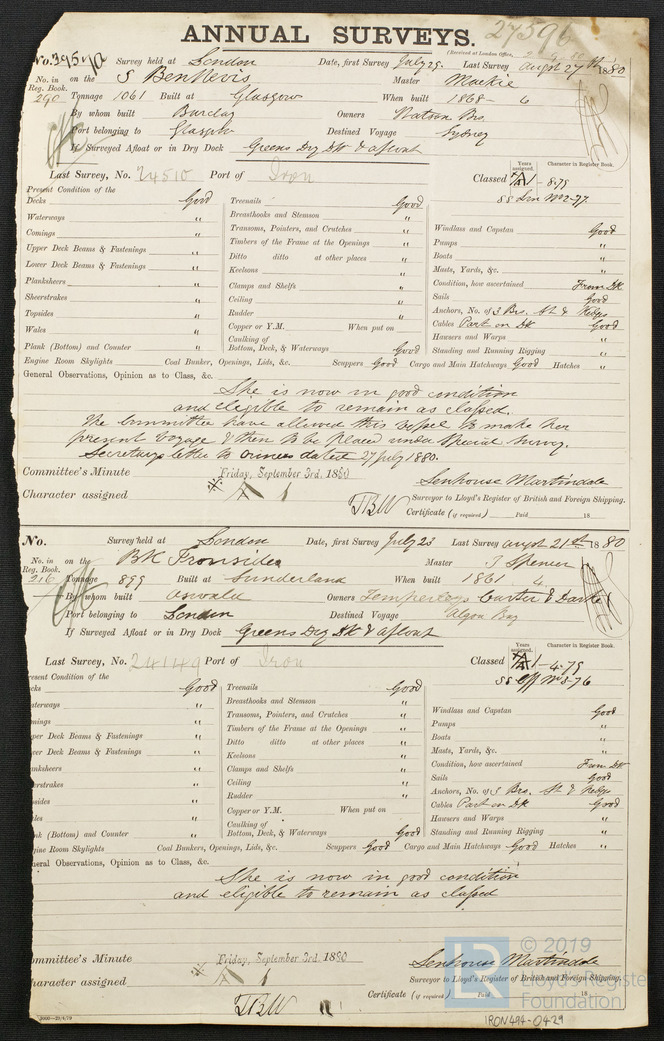 ANNUAL SURVEYS.
27596
(Received at London Office,
No. Survey held at London Date, first Survey July 29. Last Survey Augst 27th 1880
No. in Reg. Book. on the S Ben Nevis Master Mackie
290 Tonnage 1061 Built at Glasgow When built 1868 - 6
By whom built Barclay Owners Watson Bros.
Port belonging to Glasgow Destined Voyage Sydney
If Surveyed Afloat or in Dry Dock Greens Dry Dk & afloat
Last Survey, No. 24510 Port of Iron
Years assigned. Character in Register Book.
Classed A 1 - 8.79
SS Lon No 2-77
Present Condition of the
Decks Good Treenails Good
Waterways " Breasthooks and Stemson " Windlass and Capstan Good
Comings " Transoms, Pointers, and Crutches " Pumps "
Upper Deck Beams & Fastenings " Timbers of the Frame at the Openings " Boats "
Lower Deck Beams & Fastenings " Ditto ditto at other places " Masts, Yards, &c. "
Planksheers " Keelsons " Condition, how ascertained From Dk
Sheerstrakes " Clamps and Shelfs " Sails Good
Topsides " Ceiling " Anchors, No. of 3 Brs. St & Kedges
Wales " Rudder " Cables Part on Dk Good
Plank (Bottom) and Counter " Copper or Y.M. When put on Hawsers and Warps "
Caulking of Bottom, Deck, & Waterways Good Standing and Running Rigging "
Engine Room Skylights Coal Bunker, Openings, Lids, &c. Scuppers Good Cargo and Main Hatchways Good Hatches "
General Observations, Opinion as to Class, &c.
She is now in good condition
and eligible to remain as classed.
The Committee have allowed this vessel to make her
present voyage & then to be placed under Special Survey.
Secretarys letter to Owners dated 27 July 1880.
Committee's Minute Friday, September 3rd. 1880
Senhouse Martindale
Character assigned A 1
Surveyor to Lloyd's Register of British and Foreign Shipping.
TBW Certificate (if required) Paid 18
No. Survey held at London Date, first Survey July 23 Last Survey Augst 21st 1880
No. in Reg. Book. on the Bk Ironsides Master J Spencer
216 Tonnage 899 Built at Sunderland When built 1861 6
By whom built Oswald Owners Temperleys Carter & Darke
Port belonging to London Destined Voyage Algoa Bay
If Surveyed Afloat or in Dry Dock Greens Dry Dk & afloat
Last Survey, No. 24149 Port of Iron
Years assigned. Character in Register Book.
Classed A 1 - 4.79
SS No 3-76
resent Condition of the
ecks Good Treenails Good
aterways " Breasthooks and Stemson " Windlass and Capstan Good
mings " Transoms, Pointers, and Crutches " Pumps "
per Deck Beams & Fastenings " Timbers of the Frame at the Openings " Boats "
wer Deck Beams & Fastenings " Ditto ditto at other places " Masts, Yards, &c. "
anksheers " Keelsons " Condition, how ascertained From Dk
eerstrakes " Clamps and Shelfs " Sails Good
sides " Ceiling " Anchors, No. of 3 Brs. St & Kedges
les " Rudder " Cables Part on Dk Good
nk (Bottom) and Counter " Copper or Y.M. When put on Hawsers and Warps "
Caulking of Bottom, Deck, & Waterways Good Standing and Running Rigging "
gine Room Skylights Coal Bunkers, Openings, Lids, &c. Scuppers Good Cargo and Main Hatchways Good Hatches "
neral Observations, Opinion as to Class, &c.
She is now in good condition
and eligible to remain as classed
ommittee's Minute Friday, September 3rd. 1880
Senhouse Martindale
haracter assigned A 1
Surveyor to Lloyd's Register of British and Foreign Shipping.
Certificate (if required) Paid 18
TBW
3000—23/4/79
IRON494-0429
LR © 2019
Lloyd's Register
Foundation